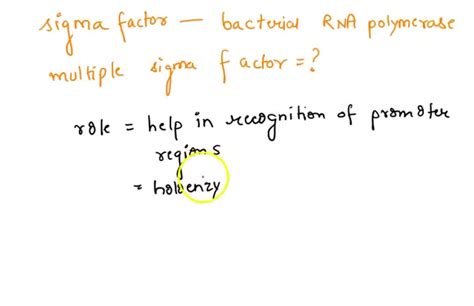 sigma factor — bacterial RNA polymerase
multiple sigma factor = ?
role = help in recognition of promoter
regions
= holoenzy